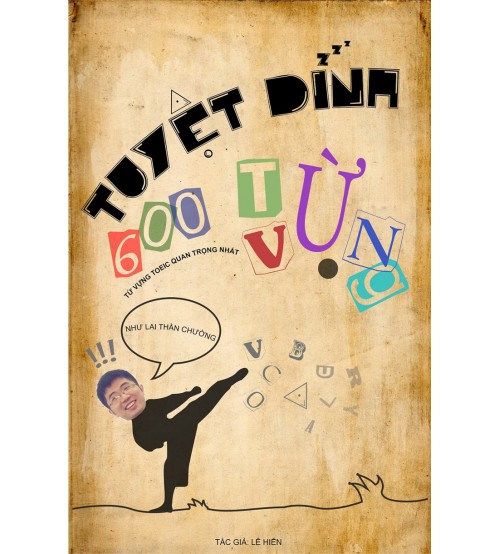 zzz
TUYỆT ĐỈNH
600 TỪ
VỰNG
TỪ VỰNG TOEIC QUAN TRỌNG NHẤT
NHƯ LAI THẦN CHƯỞNG
!!!
VOCABULARY
TÁC GIẢ: LÊ HIỀN